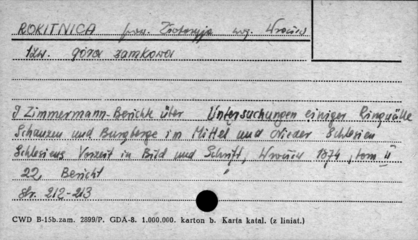 ROKITNICA pow. Złotoryja woj. Wrocław
tzw. góra zamkowa
J Zimmermann-Berichte über Untersuchungen einiger Ringwälle
Schanzen und Burgberge im Mittel und Nieder Schlesien
Schlesiens Vorzeit in Bild und Schrift, Wrocław 1874, tom II
22, Bericht
Str. 212-213
CWD B-15b.zam. 2899/P. GDA-8. 1.000.000. karton b. Karta katal. (z liniat.)